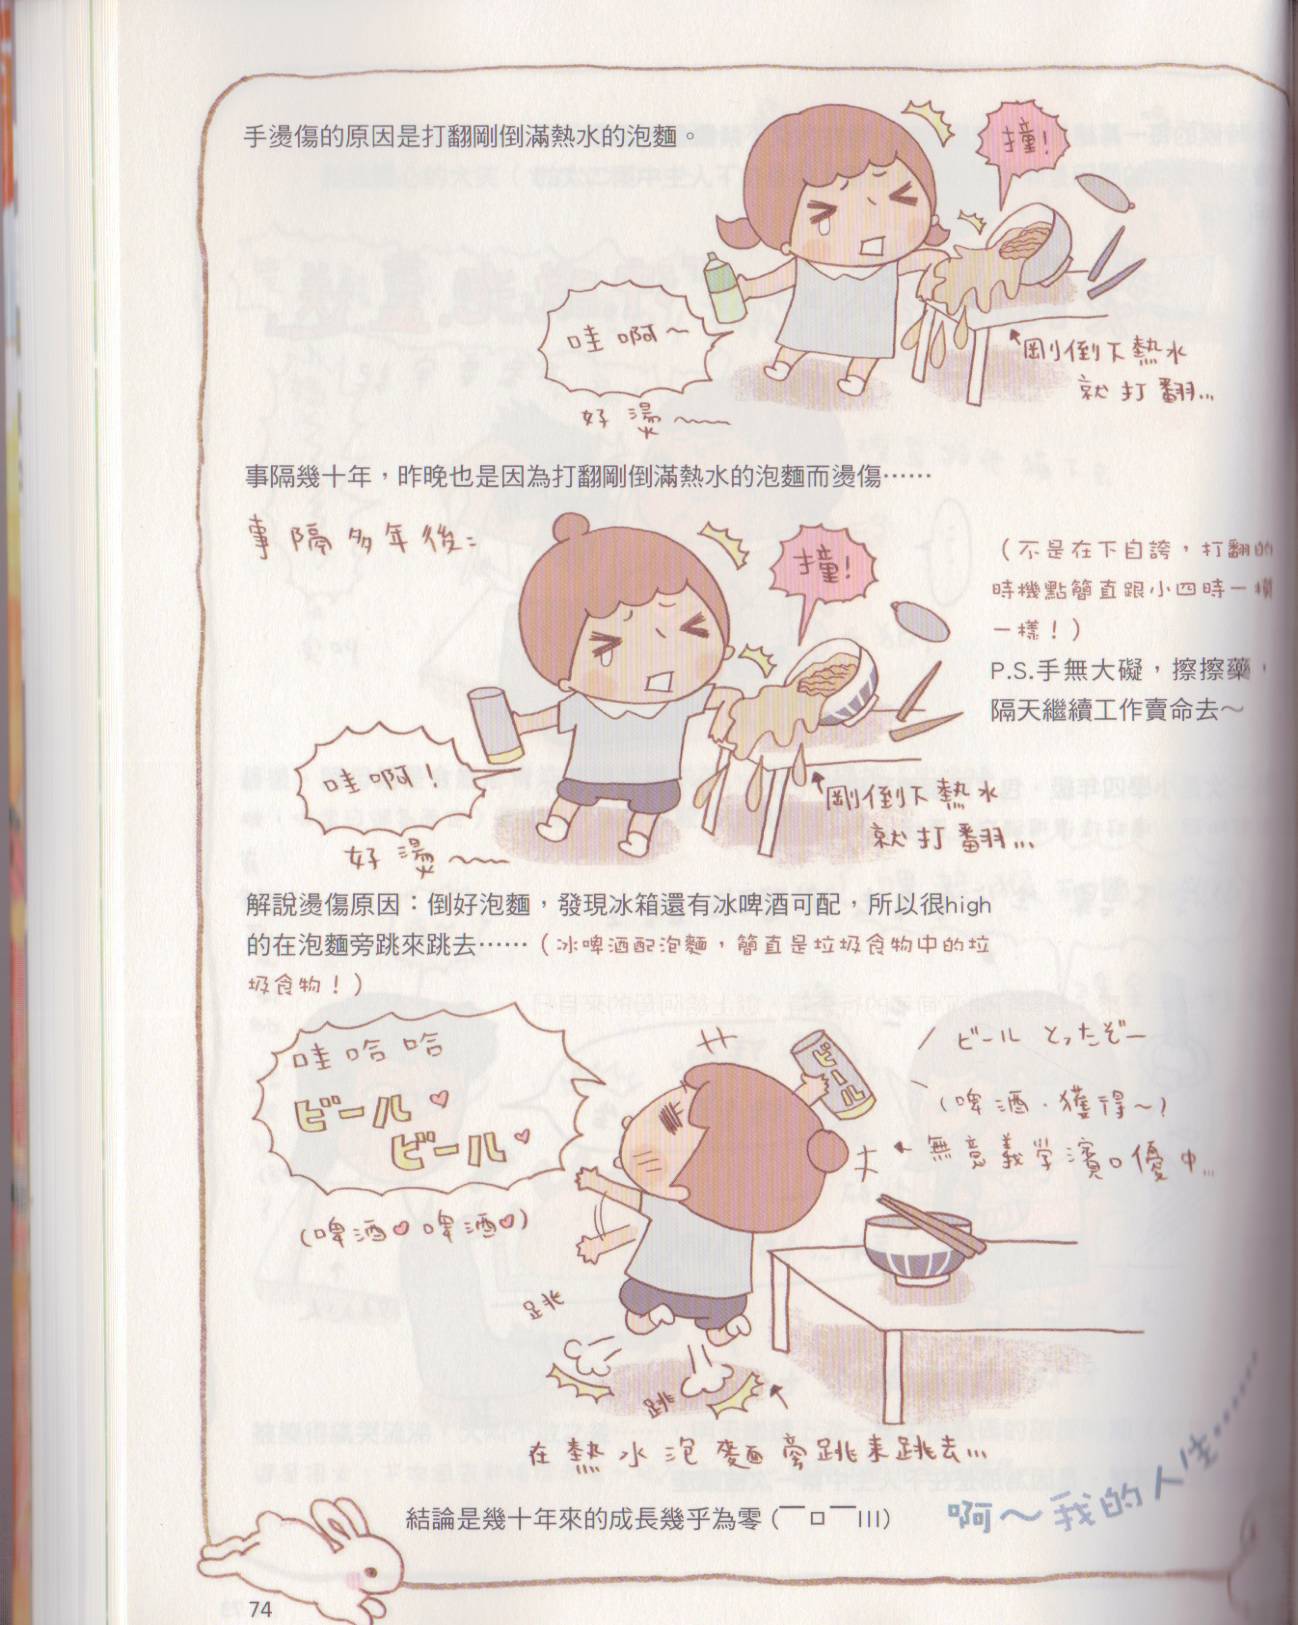 手燙傷的原因是打翻剛倒滿熱水的泡麵。
撞!
哇啊~
好燙~~
剛倒下熱水
就打翻...
事隔幾十年，昨晚也是因為打翻剛倒滿熱水的泡麵而燙傷……
事隔多年後:
撞!
（不是在下自誇，打翻的
時機點簡直跟小四時一模
一樣！）
P.S.手無大礙，擦擦藥，
隔天繼續工作賣命去～
哇啊!
好燙~~
剛倒下熱水
就打翻...
解說燙傷原因：倒好泡麵，發現冰箱還有冰啤酒可配，所以很high
的在泡麵旁跳來跳去……（冰啤酒配泡麵，簡直是垃圾食物中的垃
圾食物！）
哇哈哈
ビール♥
ビール♥
(啤酒♥啤酒♥)
ビール
ビールとったぞー
(啤酒·獲得~)
無意義學濱口優中...
跳
跳
在熱水泡麵旁跳來跳去...
結論是幾十年來的成長幾乎為零（￣ロ￣lll）
啊～我的人生……
74